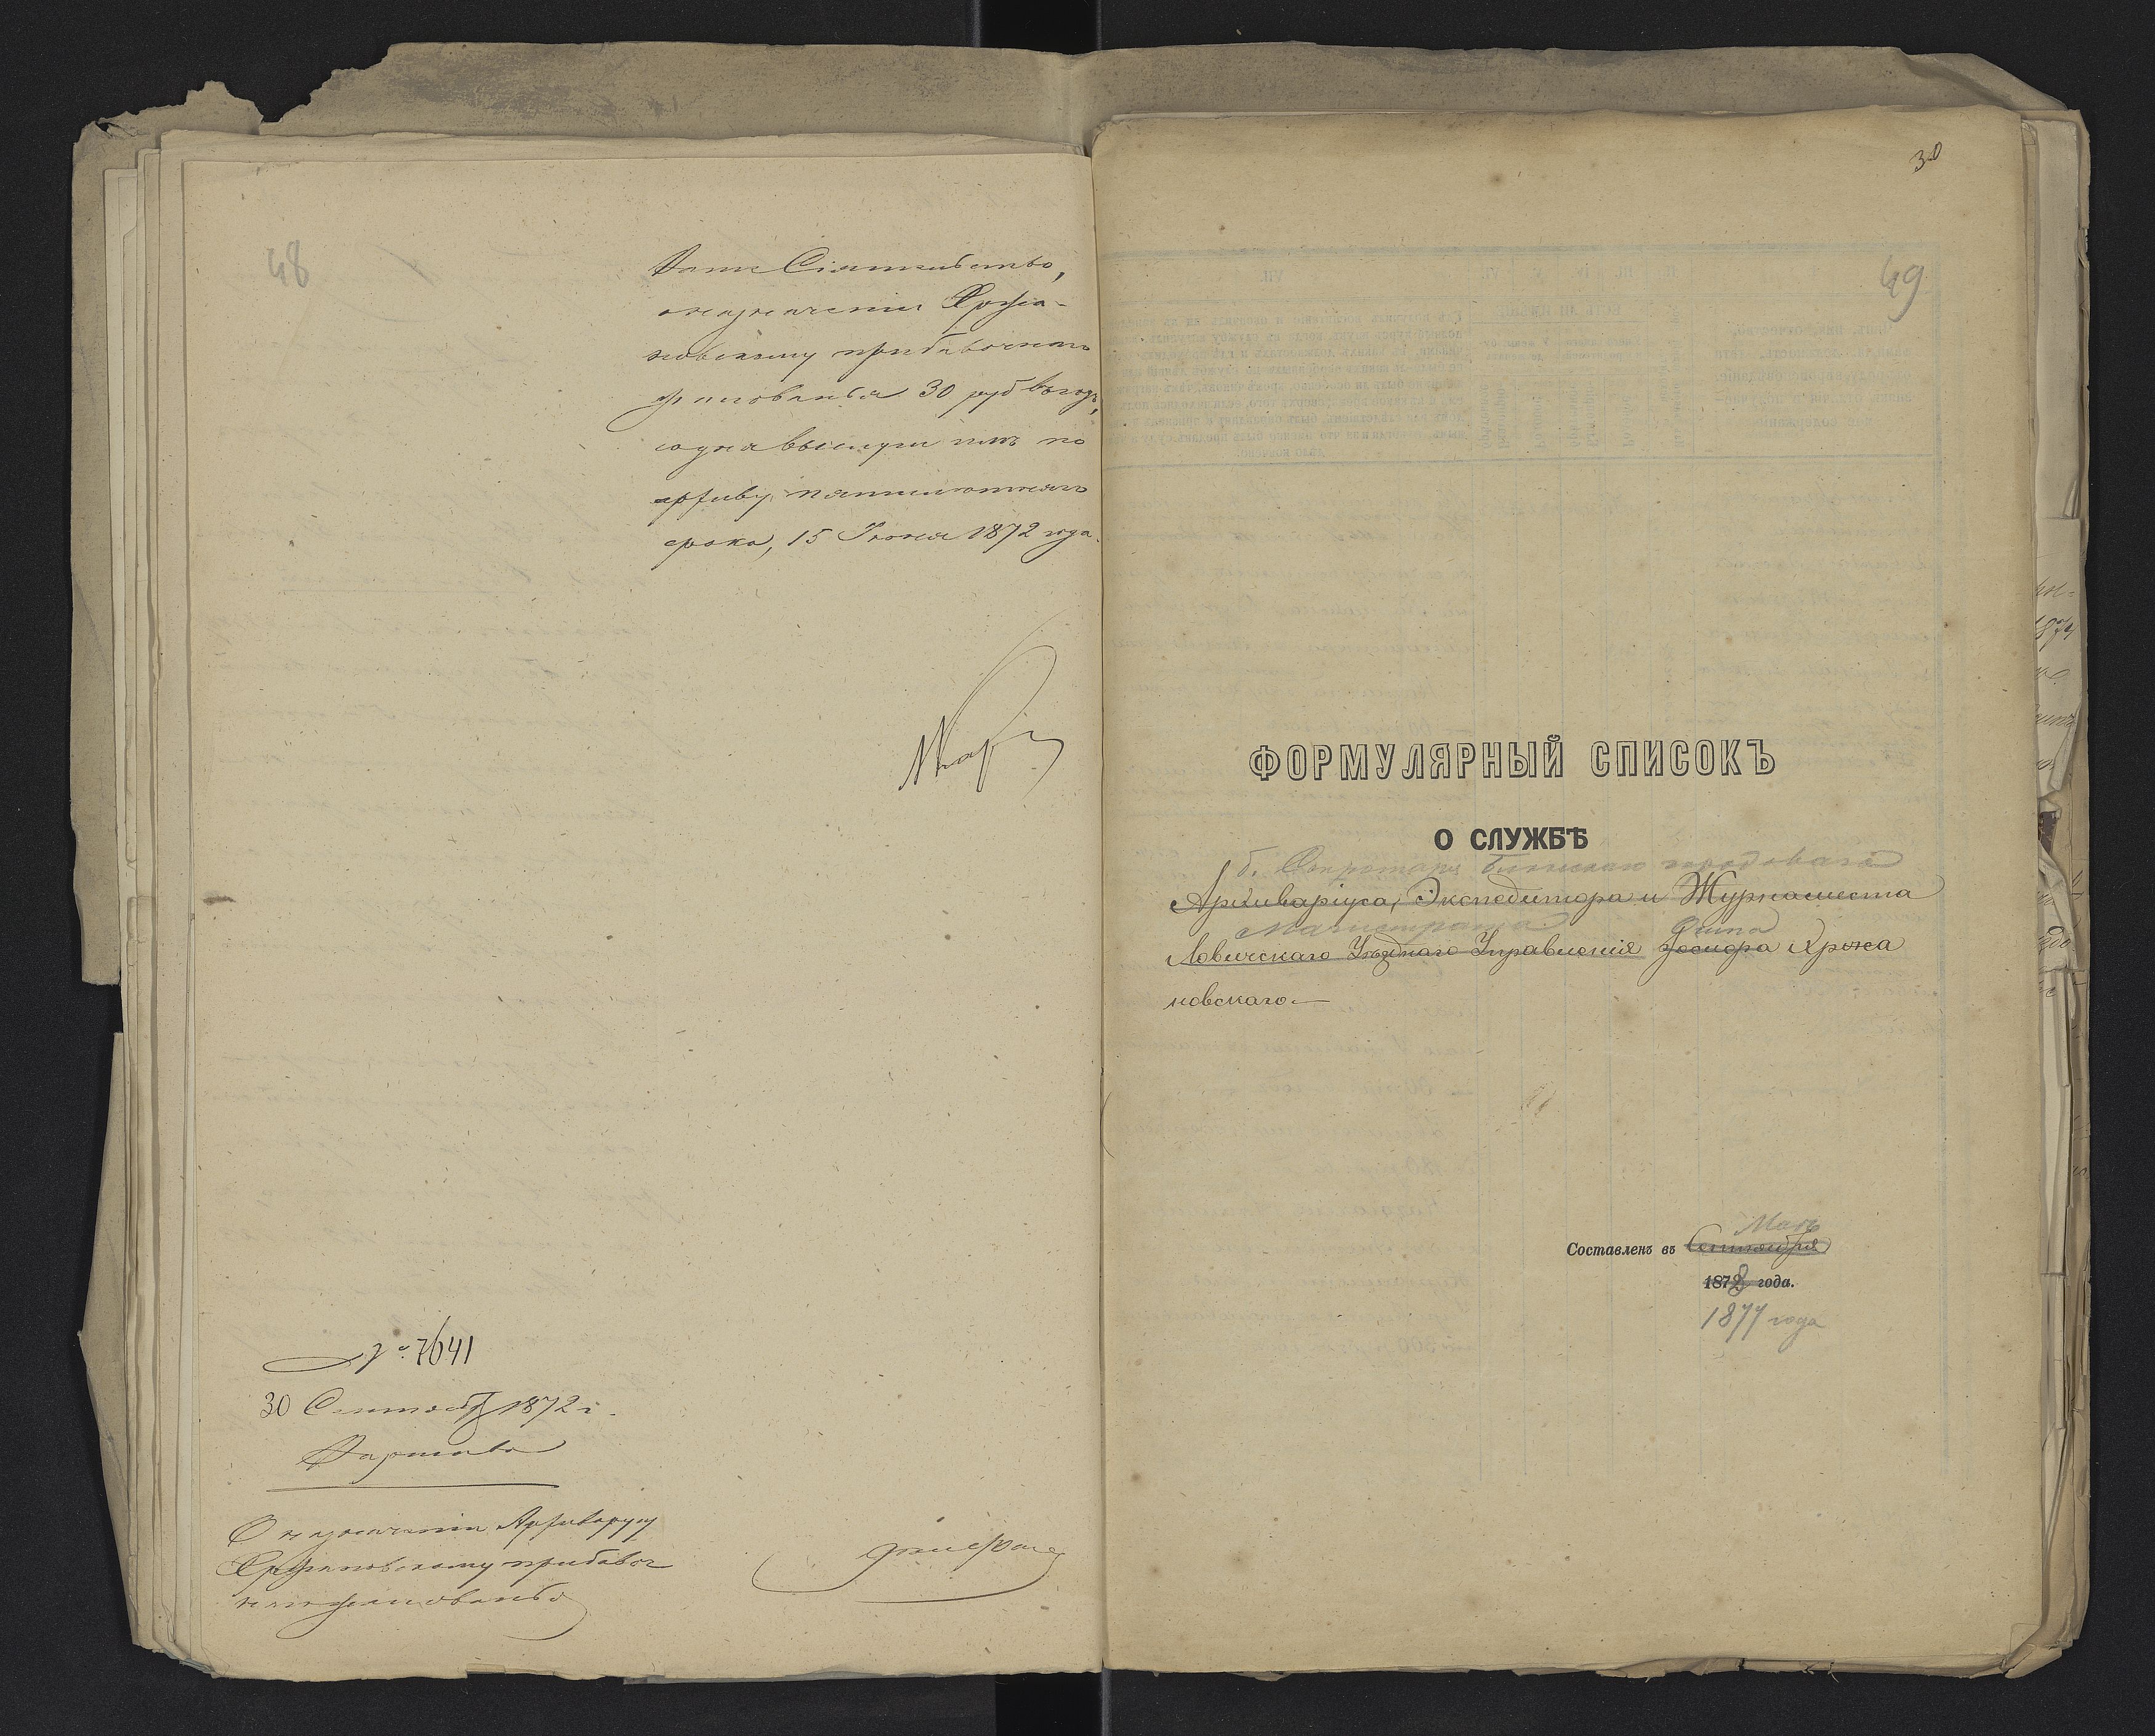 48
Ваше Сіятельство,
о назначеніи Хржа-
новскому прибавочнаго
жалованья 30 руб въ годъ,
со дня выслуги имъ по
архиву пятилѣтняго
срока, 15 Іюня 1872 года.
№ 7641
30 Сентябр 1872 г.
Варшава
О назначеніи Архиваріусу
Хржановскому прибавоч
наго жалованья
30
49
ФОРМУЛЯРНЫЙ СПИСОКЪ
О СЛУЖБѢ
б. Секретаря Блонскаго городоваго
Архиваріуса, Экспедитора и Журналиста
Магистрата Осипа
Ловичскаго Уѣзднаго Управленія Іосифа Хржа
новскаго.—
Маѣ
Составленъ въ Сентября
1872 года.
1877 года